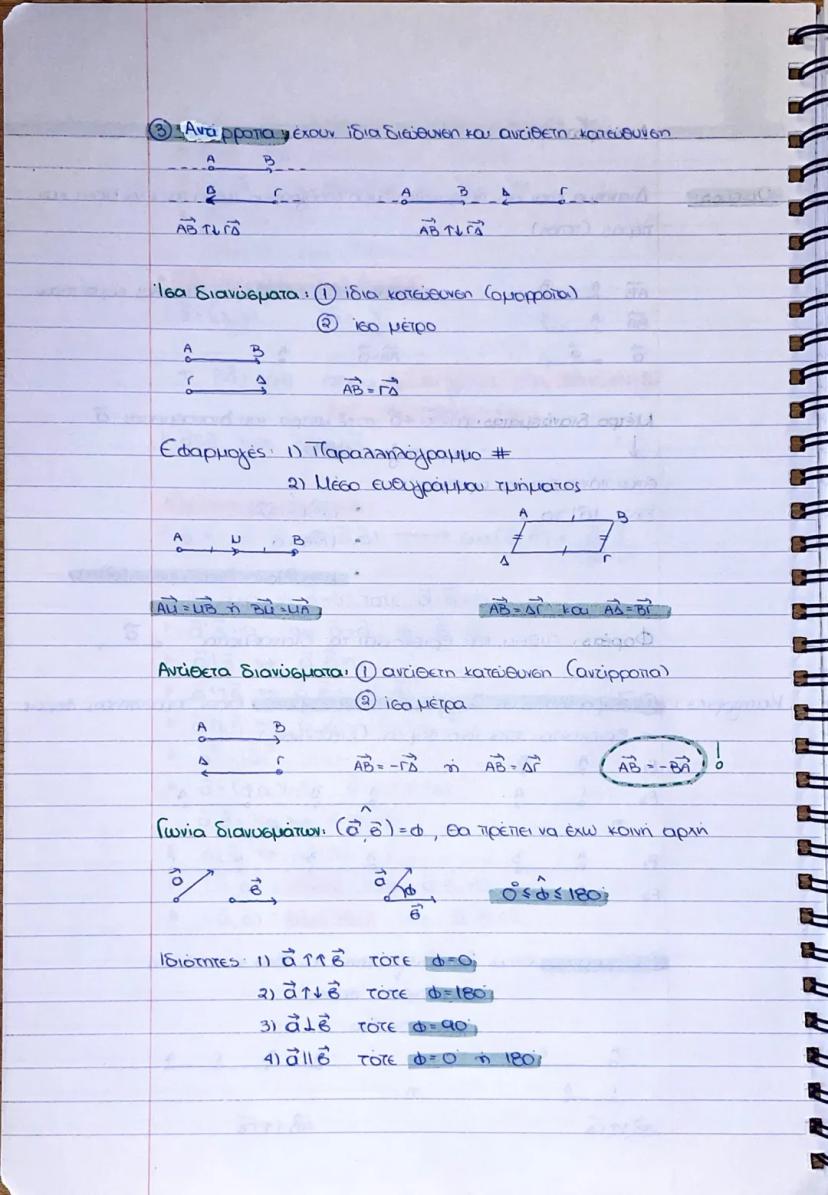 ③ Αντίρροπα, έχουν ίδια διεύθυνση και αντίθετη κατεύθυνση
Α Β
Δ Γ Α Β Δ Γ
ΑΒ⃗ ↑↓ ΓΔ⃗ ΑΒ⃗ ↑↓ ΓΔ⃗
Ίσα διανύσματα: ① ίδια κατεύθυνση (ομόρροπα)
② ίσο μέτρο
Α Β
Γ Δ ΑΒ⃗ = ΓΔ⃗
Εφαρμογές: 1) Παραλληλόγραμμο #
2) Μέσο ευθυγράμμου τμήματος
Α Β
Α Μ Β
Δ Γ
ΑΜ⃗ = ΜΒ⃗ ή ΒΜ⃗ = ΜΑ⃗ ΑΒ⃗ = ΔΓ⃗ και ΑΔ⃗ = ΒΓ⃗
Αντίθετα διανύσματα: ① αντίθετη κατεύθυνση (αντίρροπα)
② ίσα μέτρα
Α Β
Δ Γ ΑΒ⃗ = -ΓΔ⃗ ή ΑΒ⃗ = ΔΓ⃗ ΑΒ⃗ = -ΒΑ⃗ !
Γωνία διανυσμάτων: (α⃗, β⃗)^ = φ, θα πρέπει να έχω κοινή αρχή
α⃗ β⃗ α⃗ φ β⃗ 0° ≤ φ̂ ≤ 180°
Ιδιότητες: 1) α⃗ ↑↑ β⃗ τότε φ=0°
2) α⃗ ↑↓ β⃗ τότε φ=180°
3) α⃗ ⊥ β⃗ τότε φ=90°
4) α⃗ || β⃗ τότε φ=0° ή 180°